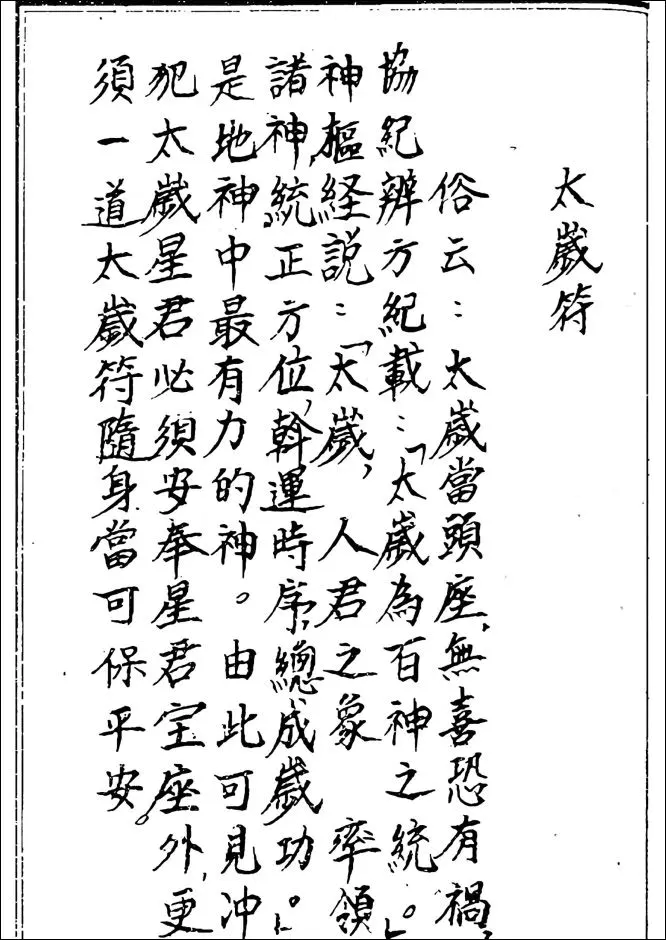 太歲符
俗云：太歲當頭座，無喜恐有禍，
協紀辨方紀載：「太歲為百神之統。」
神樞経説：「太歲，人君之象 率領
諸神，統正方位，斡運時序，總成歲功。」
是地神中最有力的神。由此可見冲
犯太歲星君必須安奉星君宝座外，更
須一道太歲符隨身當可保平安。